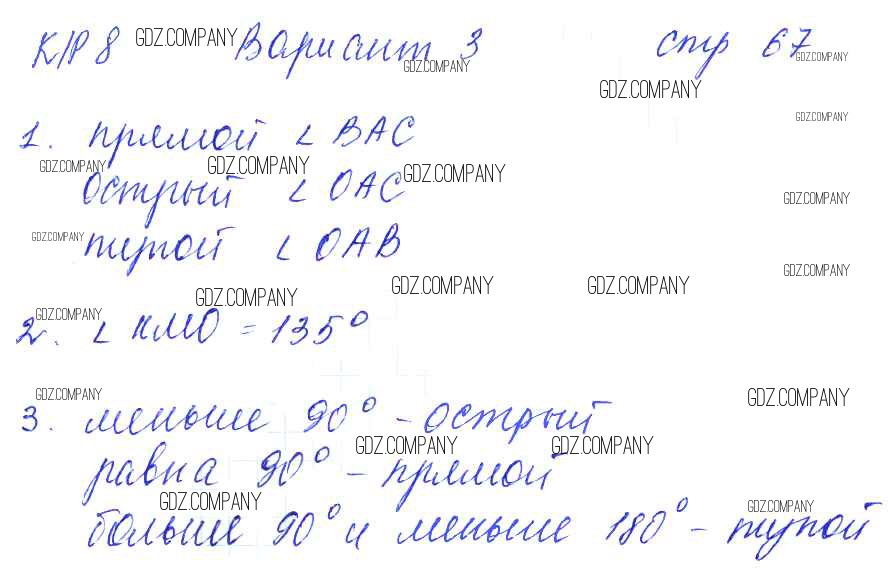 К/Р 8 GDZ.COMPANY Вариант 3 стр 67
GDZ.COMPANY GDZ.COMPANY
GDZ.COMPANY
GDZ.COMPANY
1. прямой ∠ ВАС
GDZ.COMPANY GDZ.COMPANY GDZ.COMPANY
острый ∠ ОАС
GDZ.COMPANY
GDZ.COMPANY
тупой ∠ ОАВ
GDZ.COMPANY
GDZ.COMPANY GDZ.COMPANY GDZ.COMPANY
GDZ.COMPANY
2. ∠ КМО = 135°
GDZ.COMPANY GDZ.COMPANY
3. меньше 90° - острый
GDZ.COMPANY GDZ.COMPANY
равна 90° - прямой
GDZ.COMPANY GDZ.COMPANY
больше 90° и меньше 180° - тупой